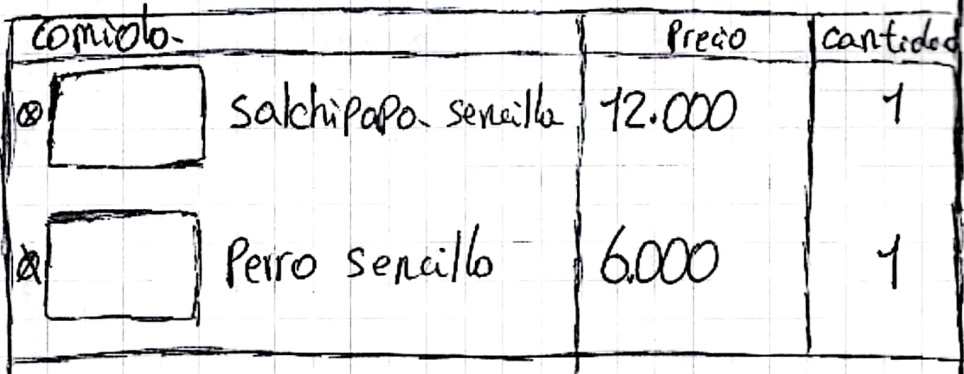 comida Precio cantidad
⊗ salchipapa sencilla 12.000 1
⊗ Perro sencillo 6.000 1